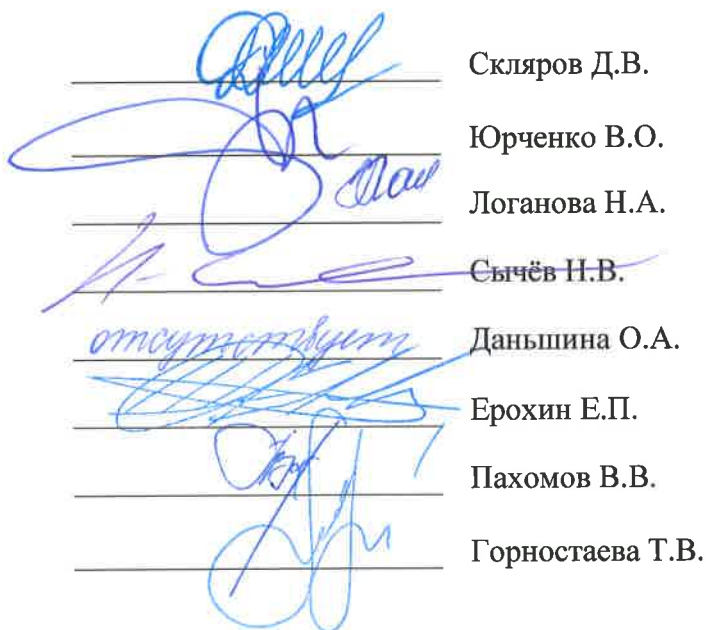 Скляров Д.В.
Юрченко В.О.
Логанова Н.А.
Сычёв Н.В.
отсутствует Даньшина О.А.
Ерохин Е.П.
Пахомов В.В.
Горностаева Т.В.